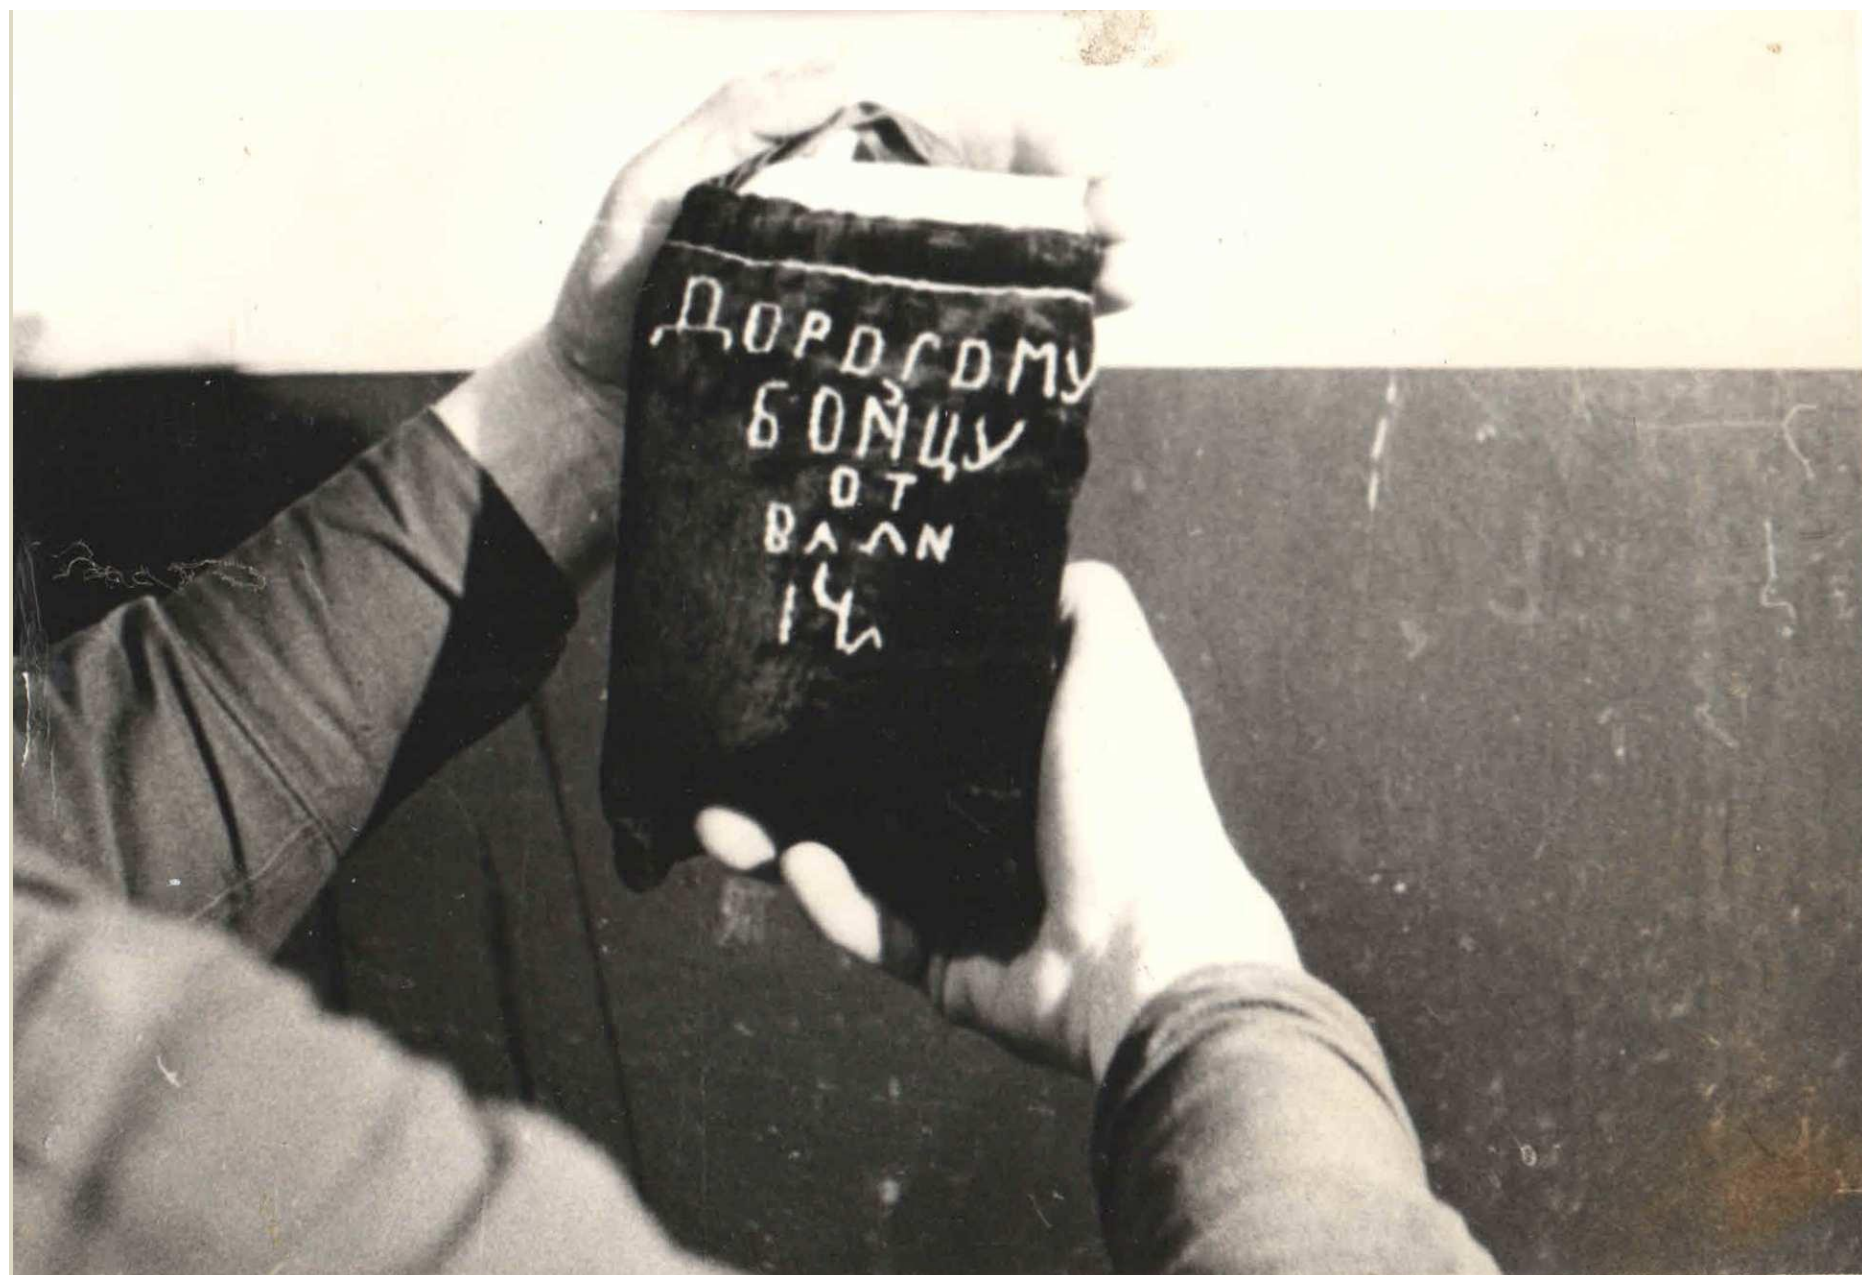 ДОРОГОМУ
БОЙЦУ
ОТ
ВАЛИ